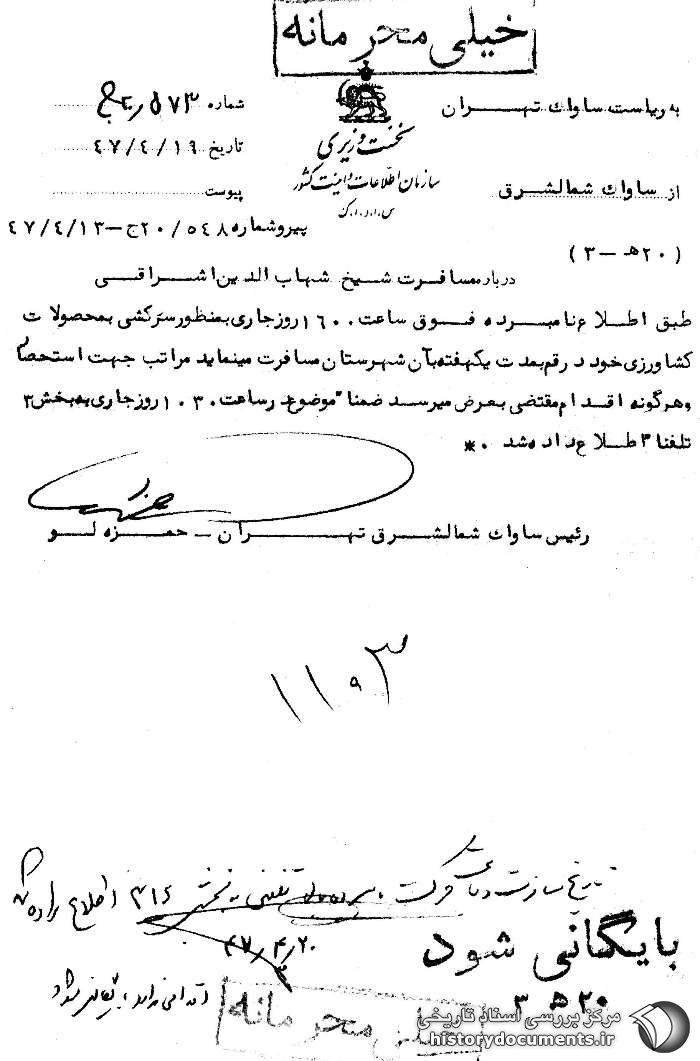 خیلی محرمانه
به ریاست ساواک تهران
از ساواک شمالشرق
نخست وزیری
سازمان اطلاعات و امنیت کشور
س.ا.و.ا.ک
شماره
تاریخ ۴۷/۴/۱۹
پیوست
پیروشماره ۲۰/۵۴۸ج-۴۷/۴/۱۳
(۲۰هـ-۳)
درباره مسافرت شیخ شهاب الدین اشراقی
طبق اطلاع نامبرده فوق ساعت ۱۶۰۰ روزجاری بمنظور سرکشی بمحصولات
کشاورزی خود در قم بمدت یکهفته بآن شهرستان مسافرت مینماید مراتب جهت استحضار
وهرگونه اقدام مقتضی بعرض میرسد ضمنا" موضوع در ساعت ۱۰۳۰ روزجاری به بخش ۳
تلفنا" اطلاع داده شد ۰*
رئیس ساواک شمالشرق تهران - حمزه لو
۱۱۰۳
اطلاع داده
۴۷/۴/۲۰
بایگانی شود
۲۰هـ ۳
خیلی محرمانه
مرکز بررسی اسناد تاریخی
historydocuments.ir